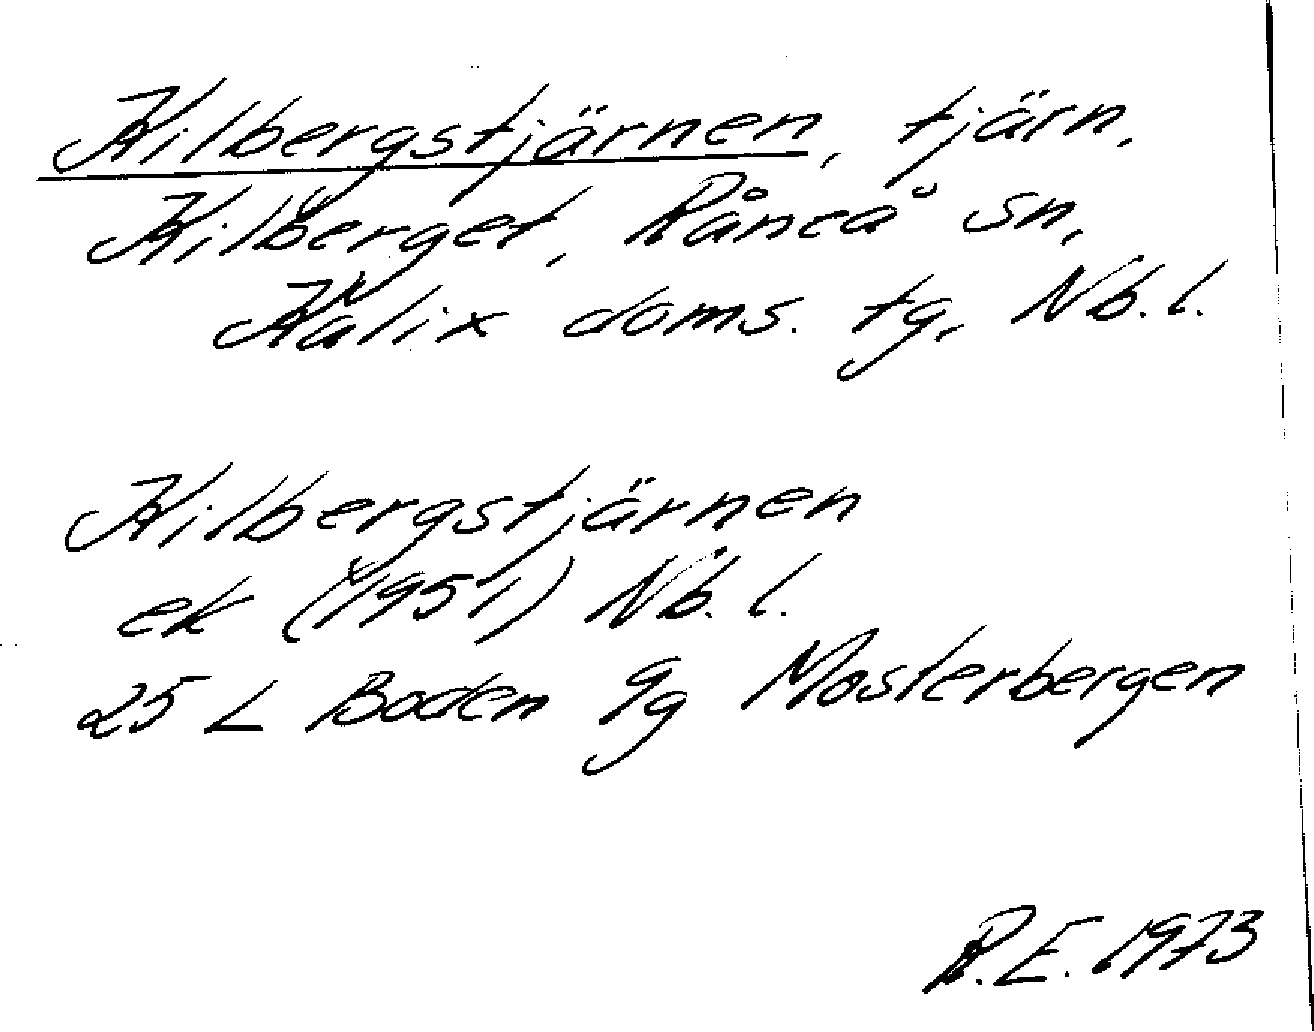 Kilbergstjärnen, tjärn,
Kilberget, Råneå sn,
Kalix doms. tg, Nb. l.
Kilbergstjärnen
ek (1951) Nb. l.
25 L Boden 9g Mosterbergen
R.E. 1973